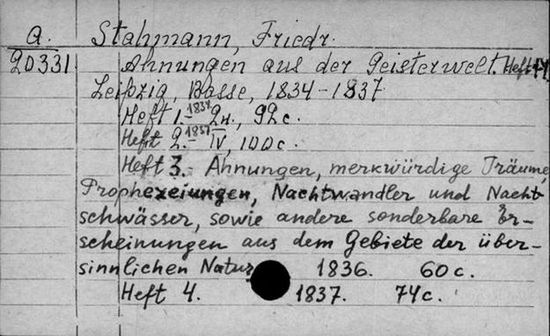 a. Stahmann, Friedr.
20331 Ahnungen aus der Geisterwelt. Heft
Leipzig, Basse, 1834-1837
Heft 1.-1834 2н., 92 c.
Heft 2.-1837 IV, 100 c.
Heft 3. Ahnungen, merkwürdige Träume,
Prophezeiungen, Nachtwandler und Nacht-
schwässer, sowie andere sonderbare Er-
scheinungen aus dem Gebiete der über-
sinnlichen Natur 1836. 60 c.
Heft 4. 1837. 74 c.